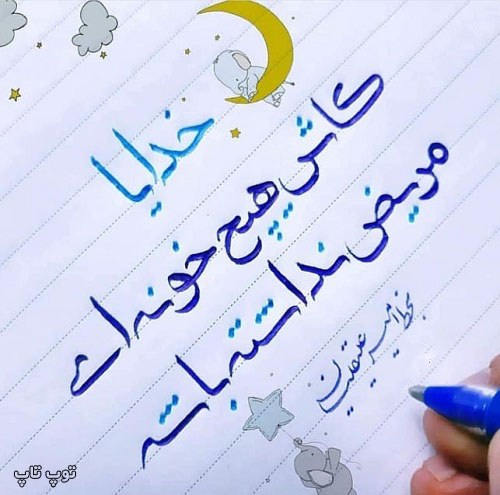 خدایا
کاش هیچ خونه ای
مریض نداشته باشه
بخط امیر
توپ تاپ